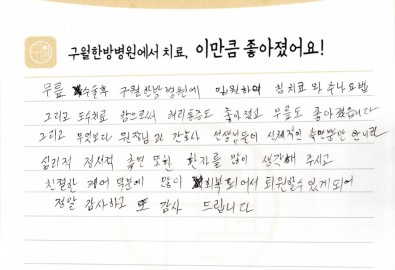 구월한방병원에서 치료, 이만큼 좋아졌어요!
무릎 수술후 구월한방병원에 입원하여 침치료와 추나요법
그리고 도수치료 받으므로써 허리통증도 좋아졌고 무릎도 좋아졌읍니다
그리고 무엇보다 원장님과 간호사 선생님들이 신체적인 측면뿐만 아니라
심리적 정서적 측면 또한 환자를 많이 생각해 주시고
친절한 케어 덕분에 많이 회복되어서 퇴원할수 있게되어
정말 감사하고 또 감사 드립니다